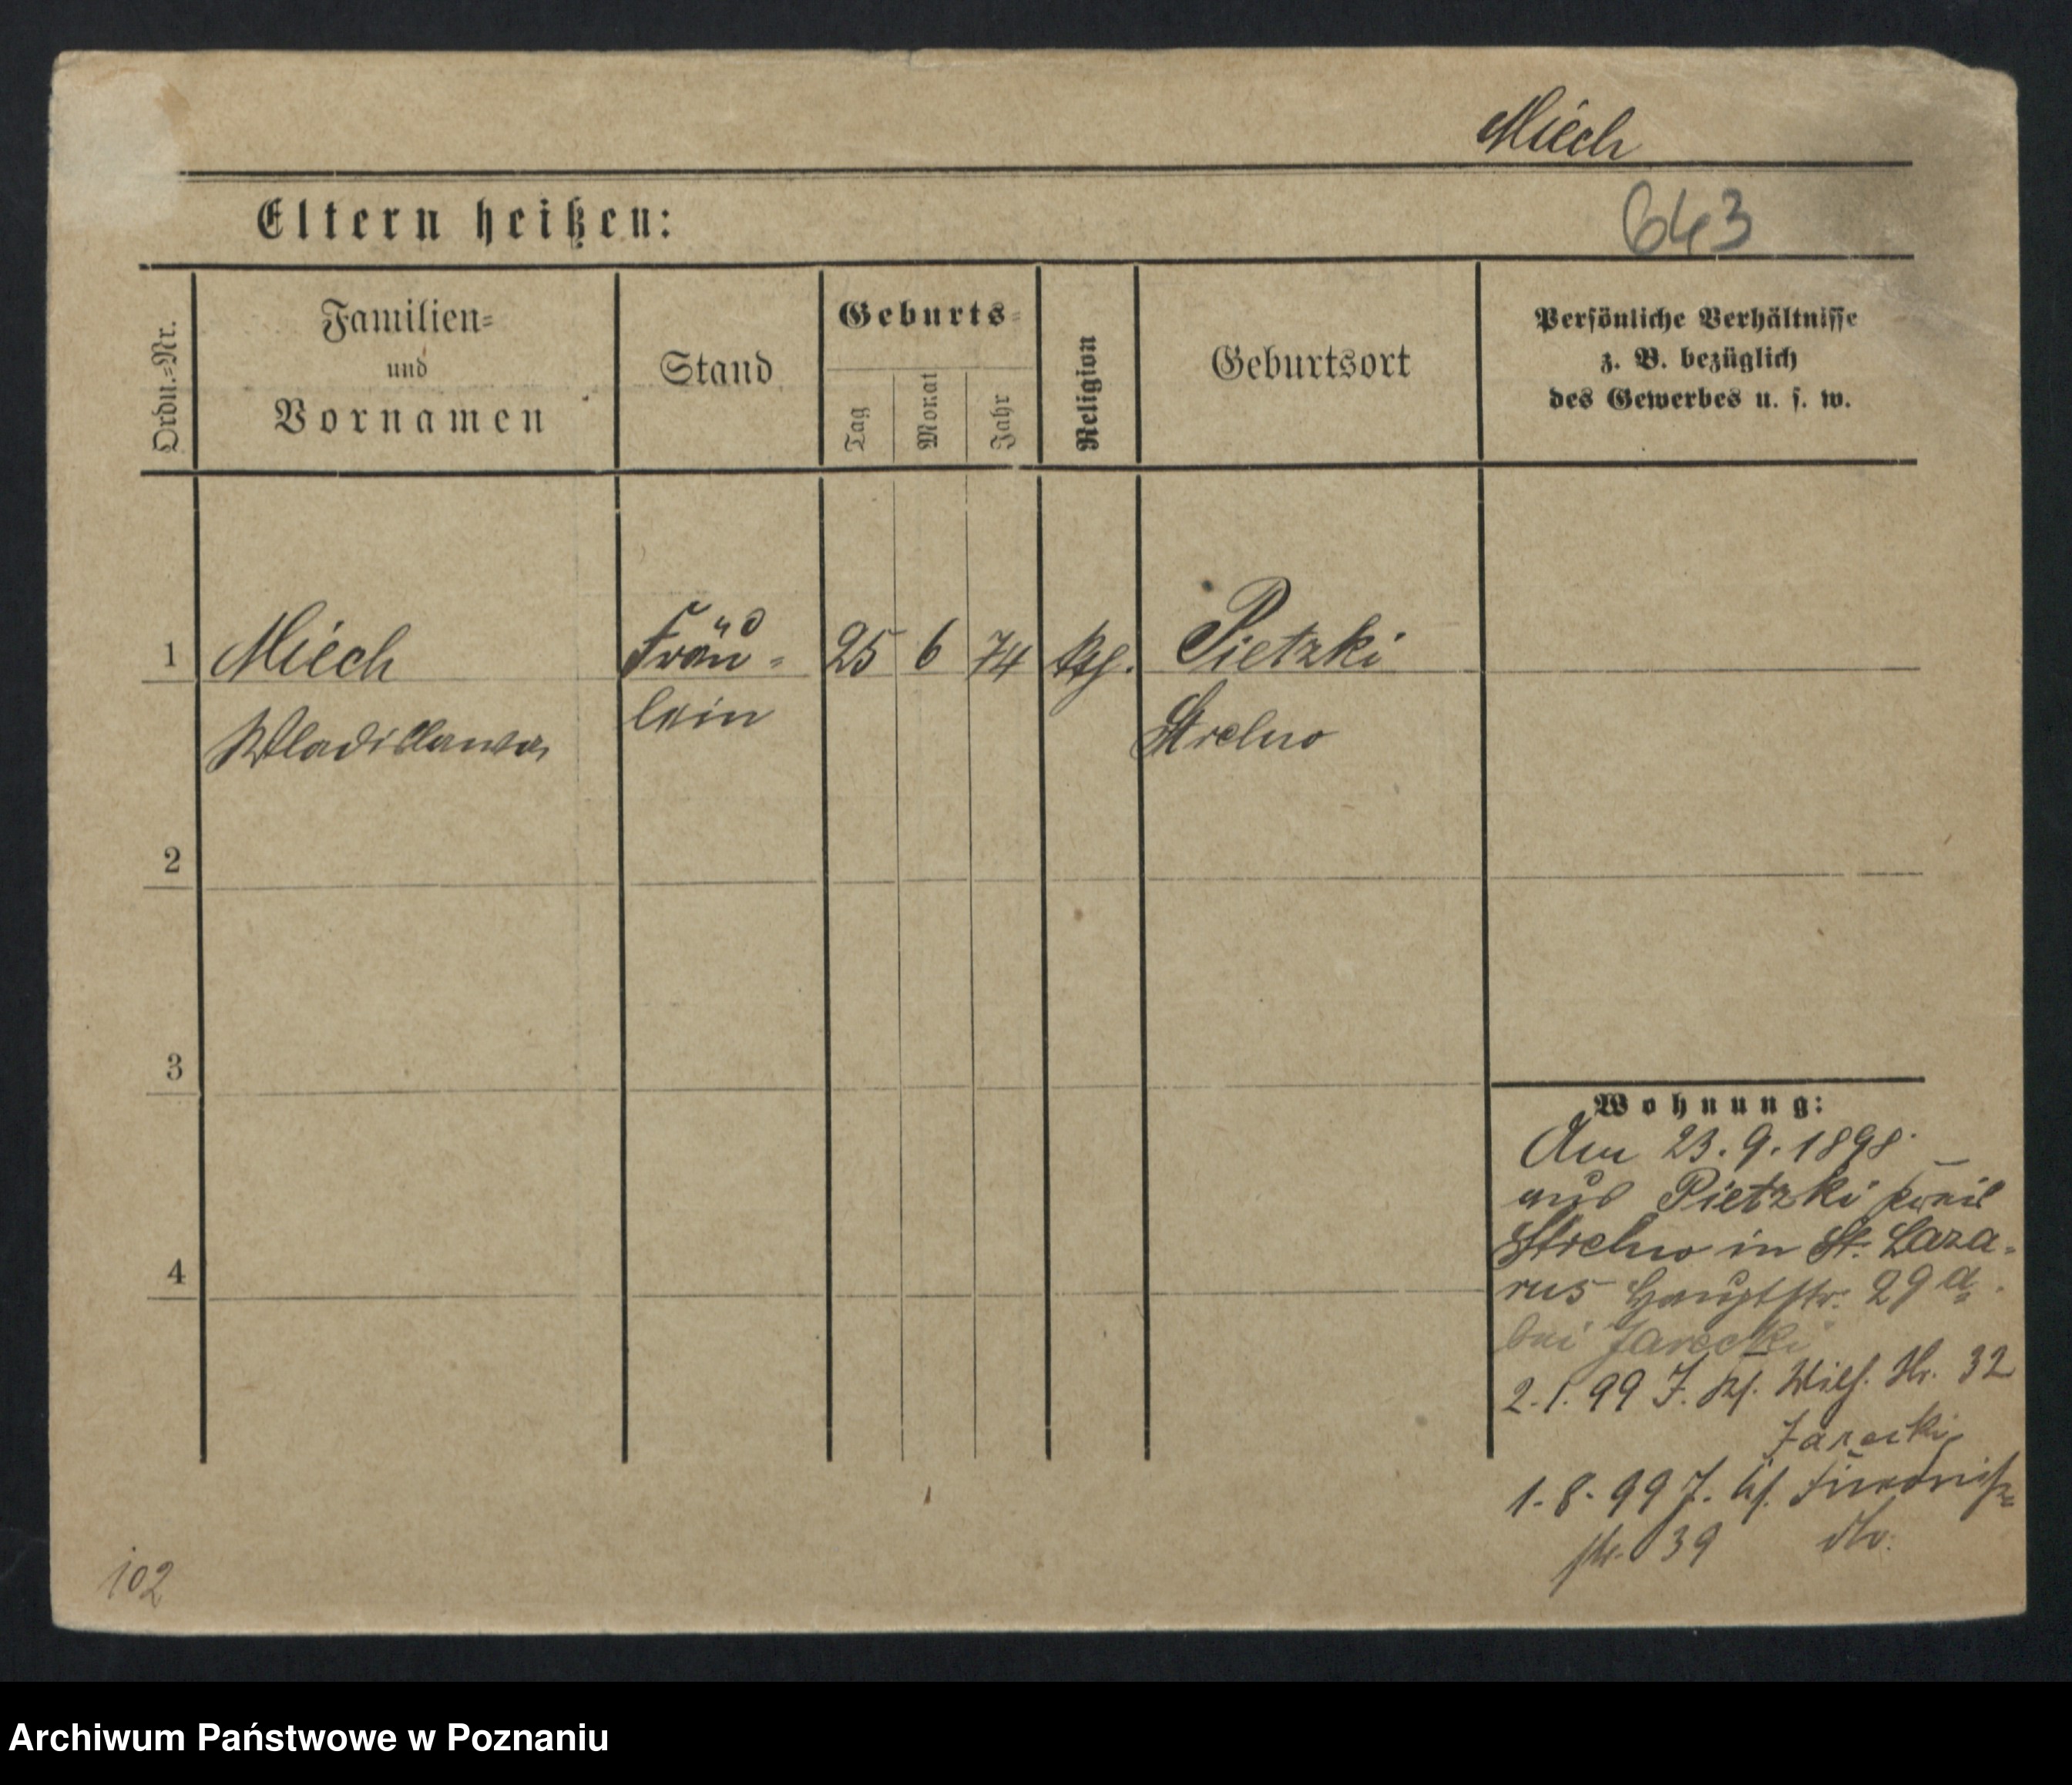 Miech
Eltern heißen:
643
Ordn.=Nr.
Familien=
und
Vornamen
Stand
Geburts=
Tag
Monat
Jahr
Religion
Geburtsort
Persönliche Verhältnisse
z. B. bezüglich
des Gewerbes u. s. w.
1
Miech
Fräu=
25
6
74
ktf.
Pietzki
Wladislawa
lein
Strelno
2
3
4
Wohnung:
Am 23.9.1898.
aus Pietzki Kreis
Strelno in St. Laza=
rus Hauptstr. 29a.
bei Jarecki
2.1.99 J. Wilh. Str. 32
Jarecki
1.8.99 J.
str. 39 dto.
102
Archiwum Państwowe w Poznaniu